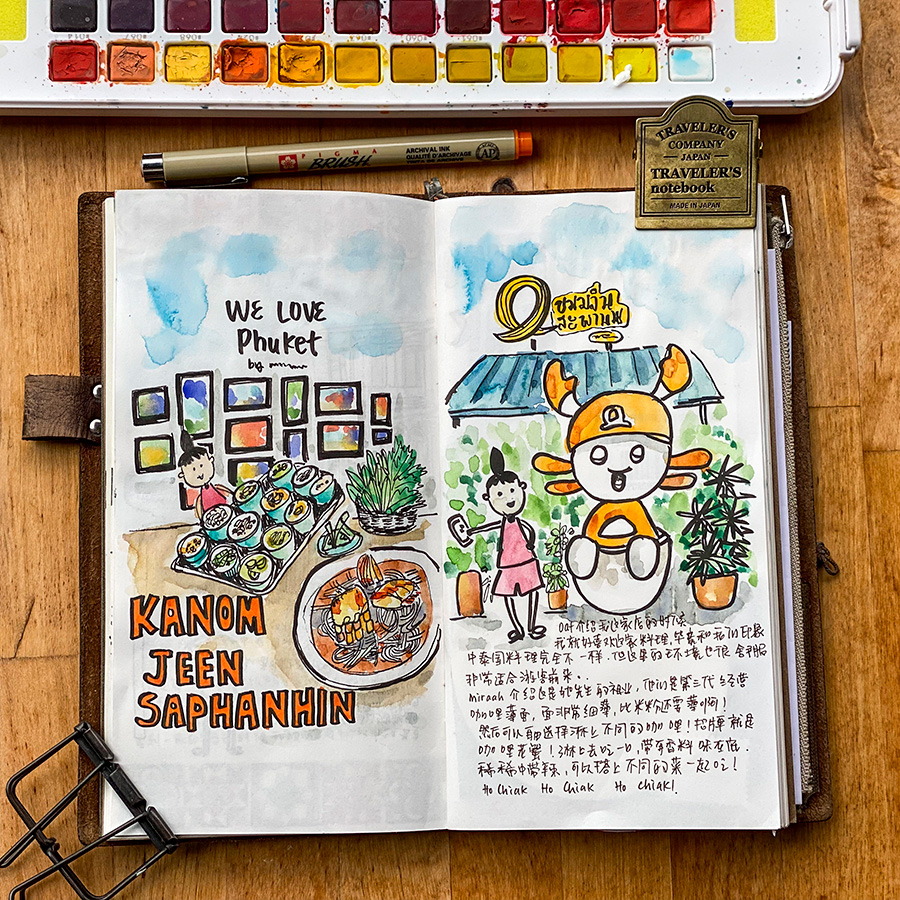 PIGMA
BRUSH
ARCHIVAL INK
QUALITÉ D'ARCHIVAGE
AP
TRAVELER'S
COMPANY
JAPAN
TRAVELER'S
notebook
MADE IN JAPAN
WE LOVE
Phuket
by
KANOM
JEEN
SAPHANHIN
ขนมจีน
สะพานหิน
介绍我这家店的时候
我就好喜欢这家料理,毕竟和我们印象
中泰国料理完全不一样,但这里的环境也很舒服
非常适合游客前来..
miraah 介绍这是她先生的祖业,他们是第三代经营
咖哩薄面,面非常细薄,比米粉还要薄啊!
然后可以再选择淋上不同的咖哩!招牌就是
咖哩花蟹!淋上去吃一口,带有香料味在底.
稀稀中带辣,可以搭上不同的菜一起吃!
Ho Chiak Ho Chiak Ho Chiak!